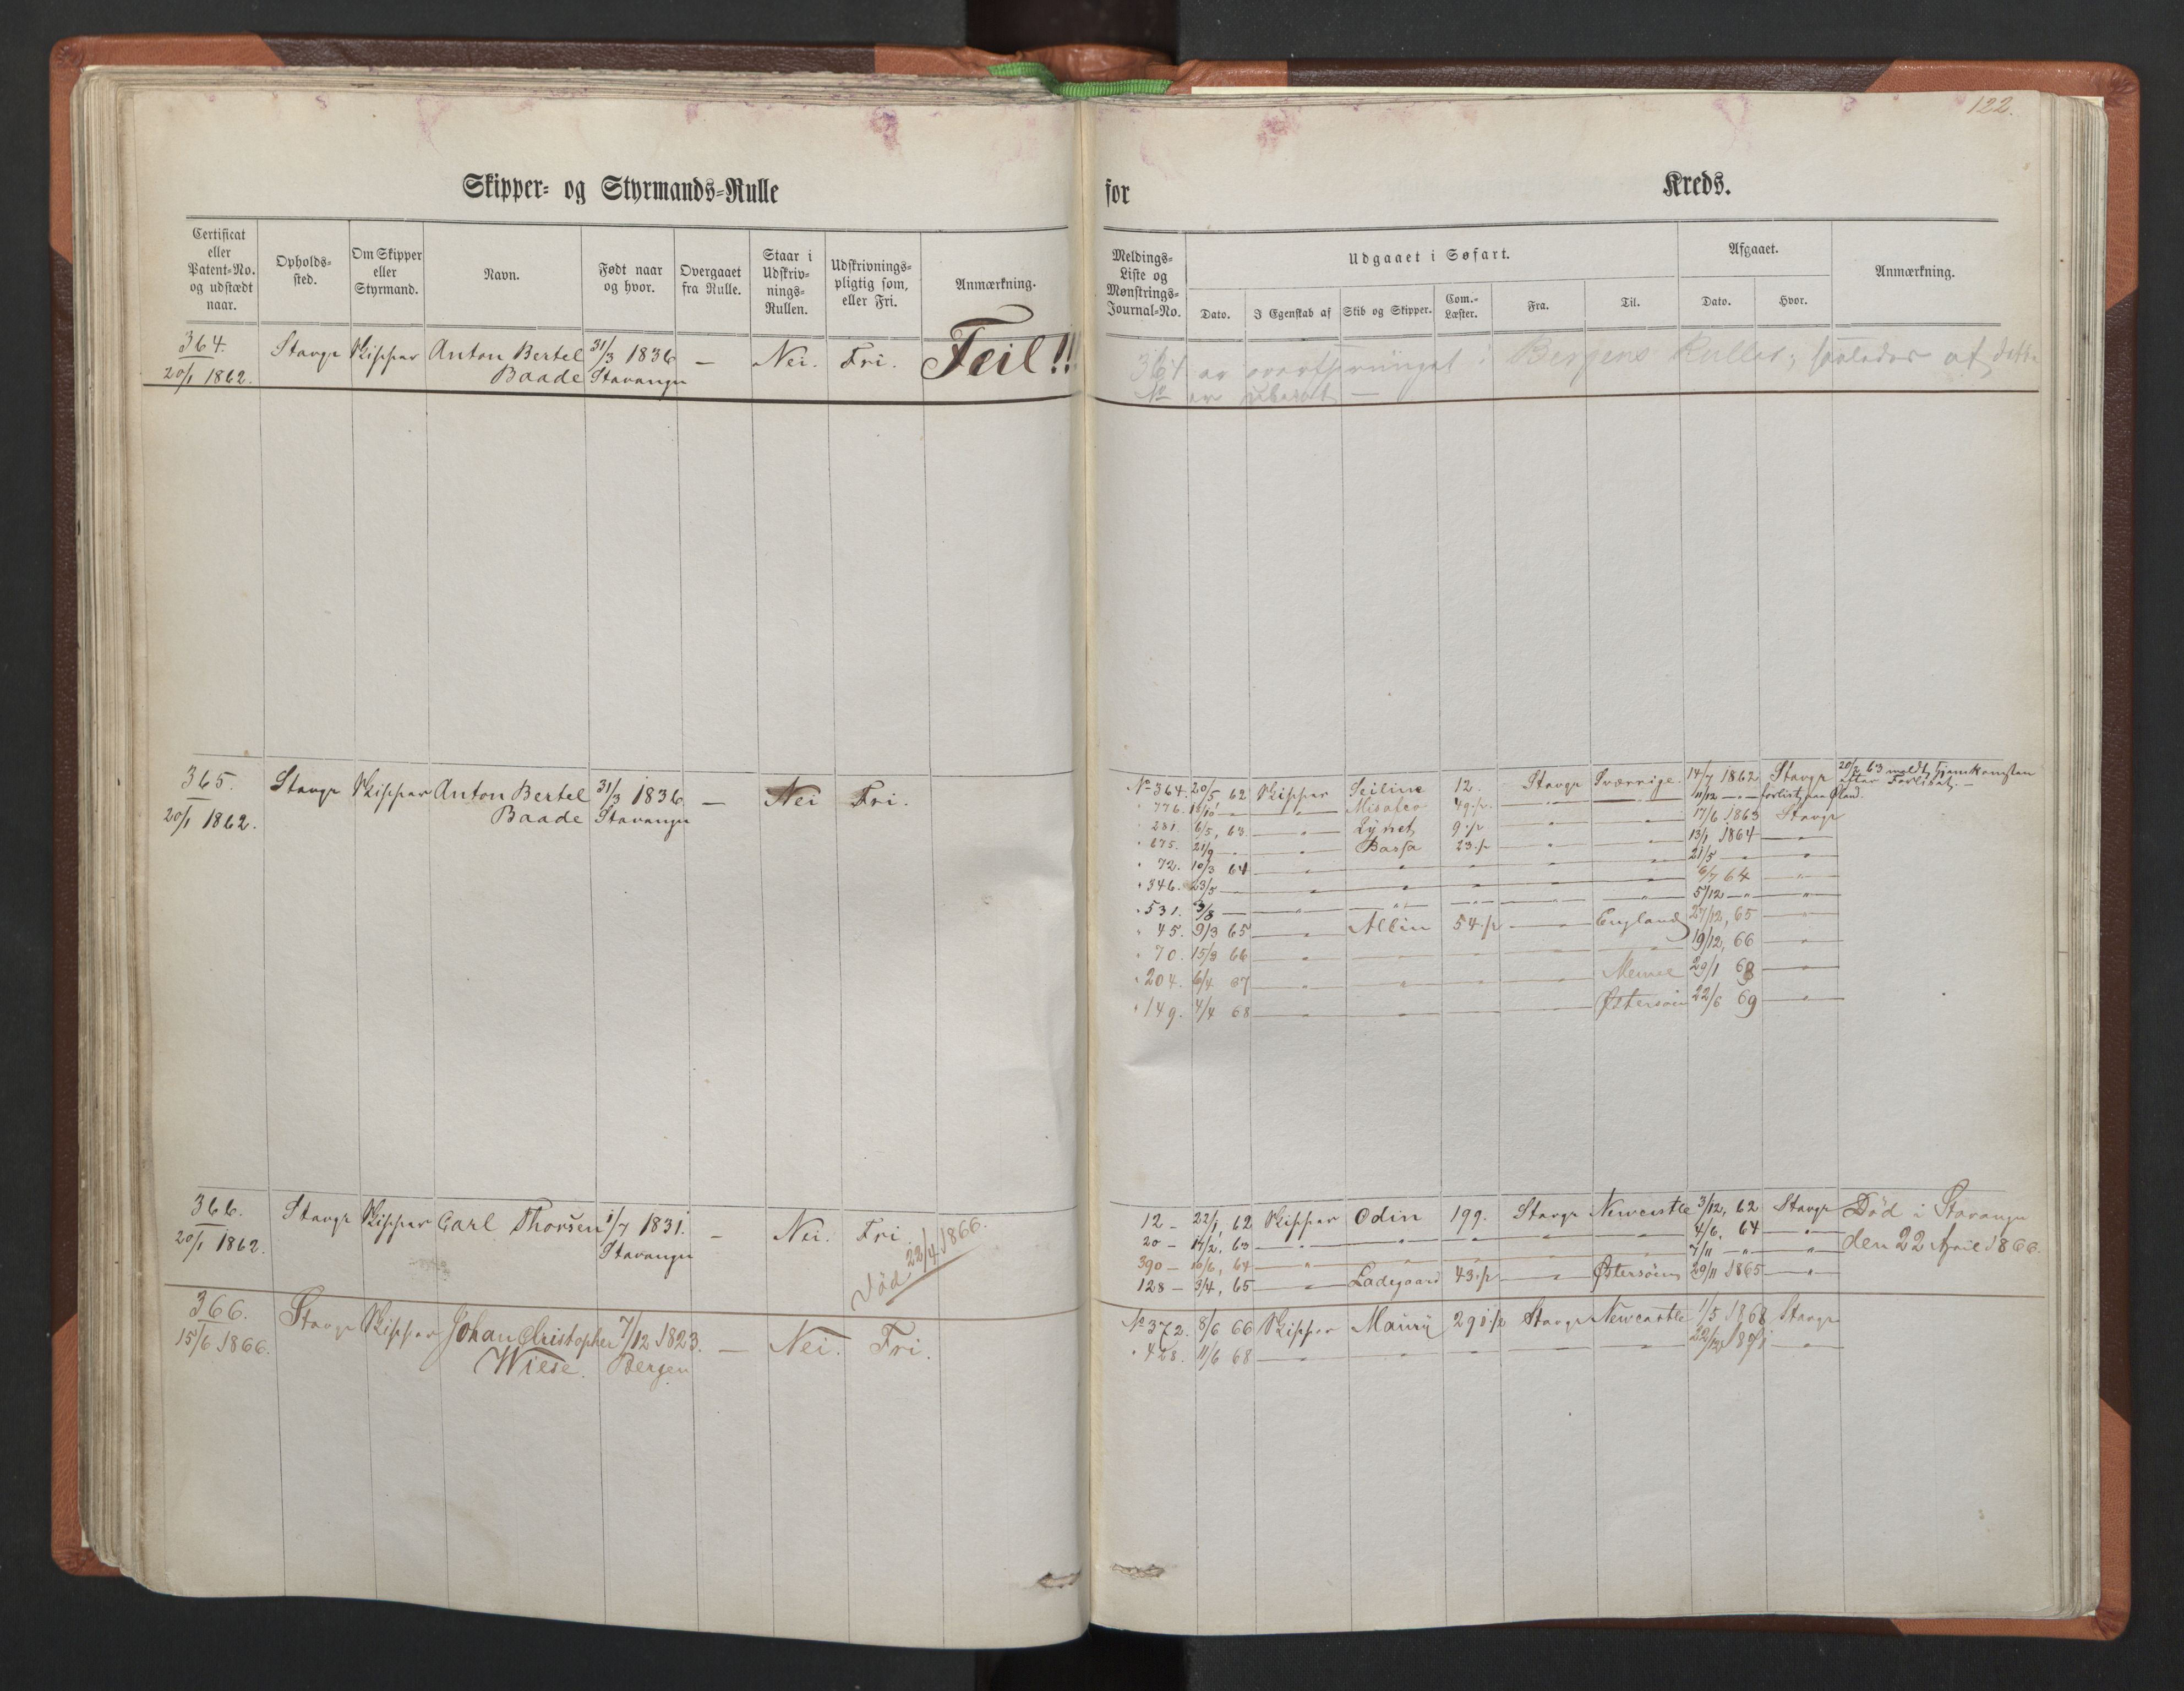 122.
Skipper- og Styrmands-Rulle
for Kreds.
Certificat eller Patent-No. og udstædt naar.
Opholds-sted.
Om Skipper eller Styrmand.
Navn.
Født naar og hvor.
Overgaaet fra Rulle.
Staar i Udskriv-nings-Rullen.
Udskrivnings-pligtig som, eller Fri.
Anmærkning.
Meldings-Liste og Mønstrings-Journal-No.
Udgaaet i Søfart.
Dato.
I Egenskab af
Skib og Skipper.
Com.-Læster.
Fra.
Til.
Afgaaet.
Dato.
Hvor.
Anmærkning.
364. Stavgr Skipper Anton Bertel 31/3 1836 — Nei. Fri. Feil!!
20/1 1862. Baade Stavanger
364 er Bergens Rulle, saaledes at dette
No er ubesat —
365. Stavgr Skipper Anton Bertel 31/3 1836. — Nei Fri.
20/1 1862. Baade Stavanger
No 364. 20/5 62 Skipper Seiline 12. Stavgr Sverrige. 14/7 1862 Stavgr 20/2 63 meldt Hjemkomsten
efter Forliset. —
" 776. — " — " — " — 11/12 — " — forlist paa Øland.
" 281. 6/5, 63. — " — Lynet 9 1/2 — " — " — 17/6 1863 Stavgr
" 675. 21/9 — " — Bassa 23 1/2 — " — " — 13/1 1864 — " —
" 72. 10/3 64 — " — " — " — " — 21/5 — " — " —
" 346. 23/5 — " — " — " — " — 6/7 64 — " —
" 531. 3/8 — " — " — " — " — 5/12 — " — " —
" 45. 9/3 65 — " — Albin 54 1/2 — " — England 27/12, 65 — " —
" 70. 15/3 66 — " — " — " — 19/12, 66 — " —
" 204. 6/4 67 — " — " — " — Memel 29/1 68 — " —
" 149. 4/4 68 — " — " — " — Østersøen 22/6 69 — " —
366. Stavgr Skipper Carl Thorsen 1/7 1831. — Nei. Fri.
20/1 1862. Stavanger
Død 22/4 1866.
12 — 22/1, 62 Skipper Odin 199. Stavgr Newcastle 3/12, 62 Stavgr Død i Stavanger
20 — 14/2, 63 — " — " — " — " — 4/6, 64 — " — den 22 April 1866.
390 — 10/6, 64 — " — " — " — 7/11 — " — " —
128 — 3/4, 65 — " — Ladegaard 43 1/2 — " — Østersøen 29/11 1865 — " —
366. Stavgr Skipper Johan Christopher 7/12 1823. — Nei. Fri.
15/6 1866. Wiese. Bergen
No 372. 8/6 66 Skipper Maury 290 1/2 Stavgr Newcastle 1/5 1868 Stavgr
" 428. 11/6 68 — " — " — " — " — 22/12 1871 — " —